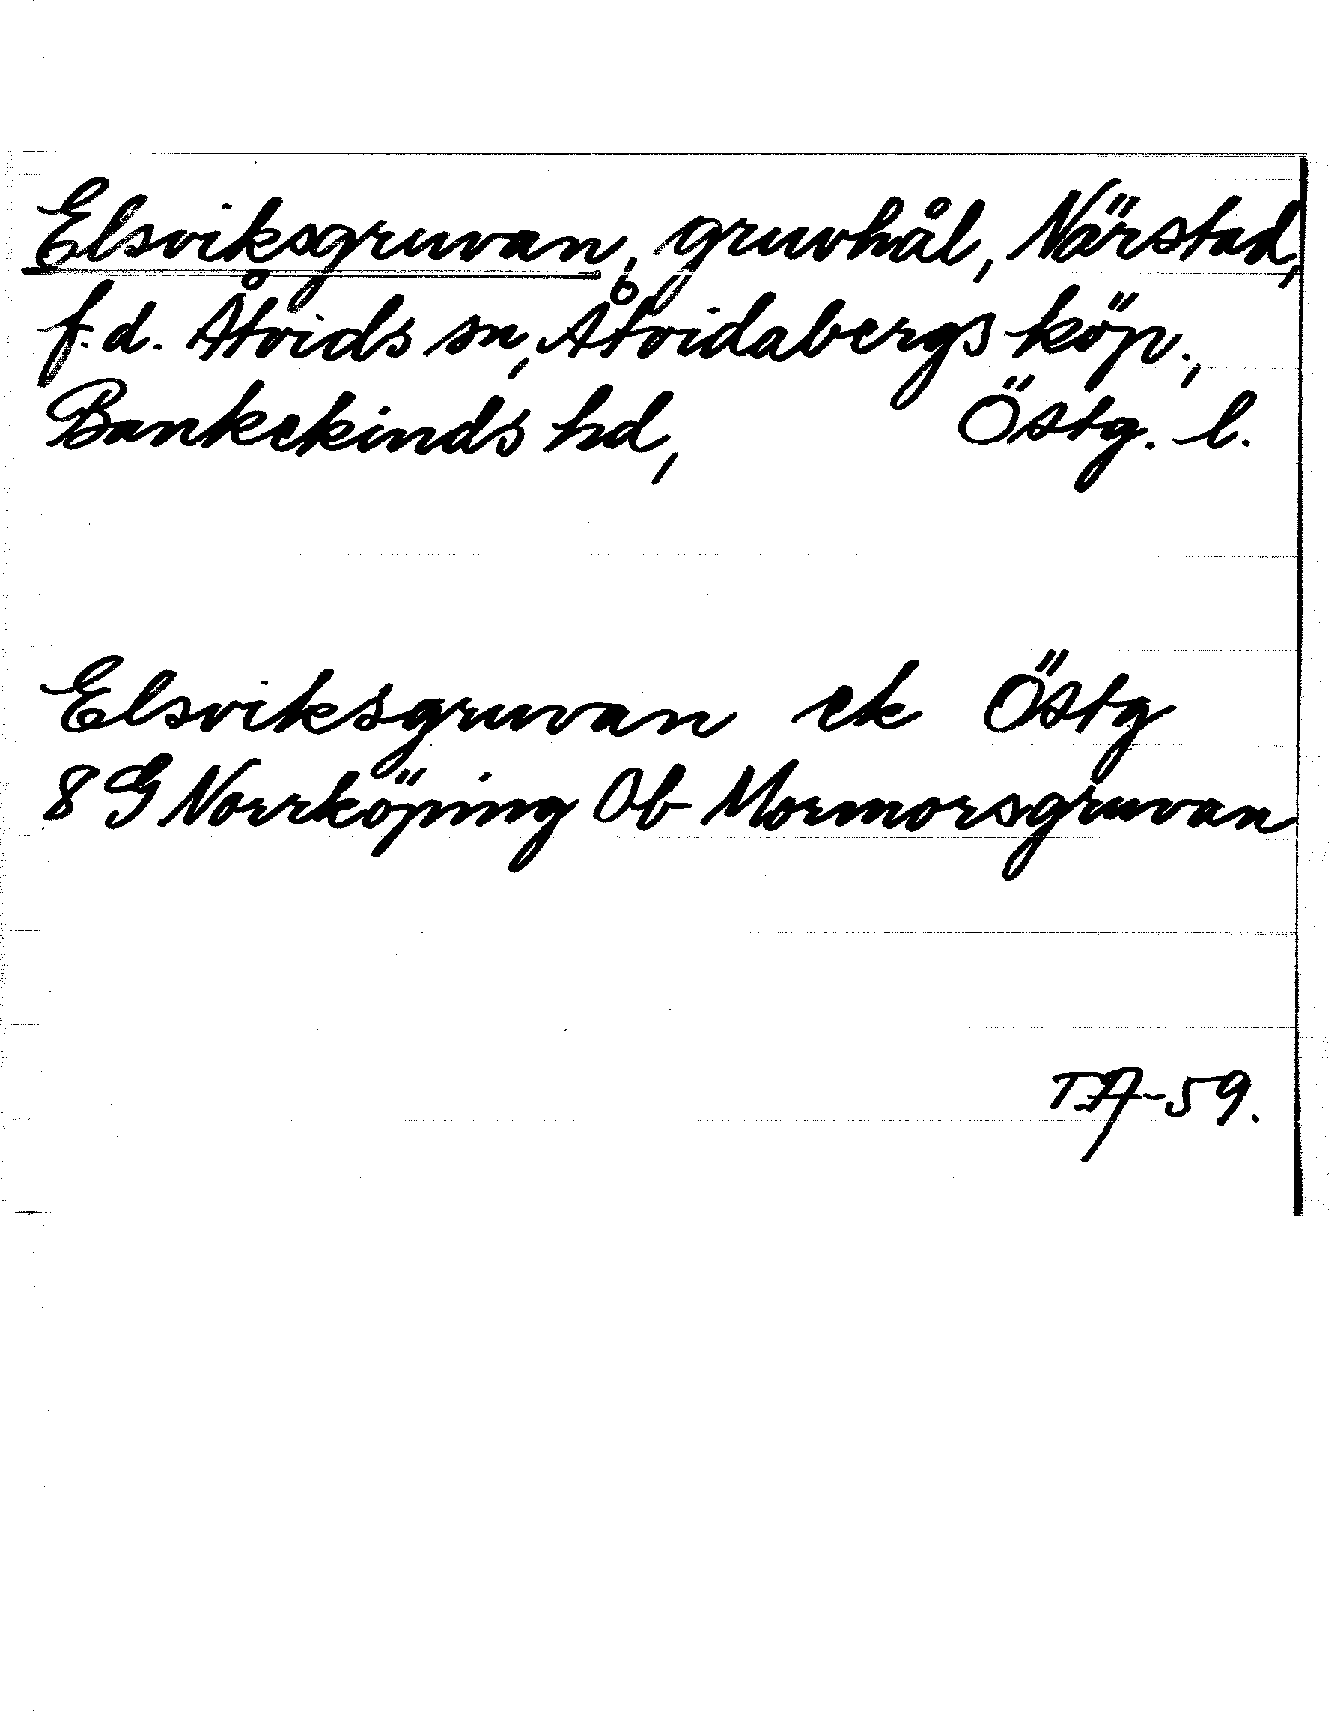 Elsviksgruvan, gruvhål, Närstad,
f.d. Åtvids sn, Åtvidabergs köp.,
Bankekinds hd, Östg. l.
Elsviksgruvan ek Östg
8 G Norrköping Ob Mormorsgruvan
T.A-59.